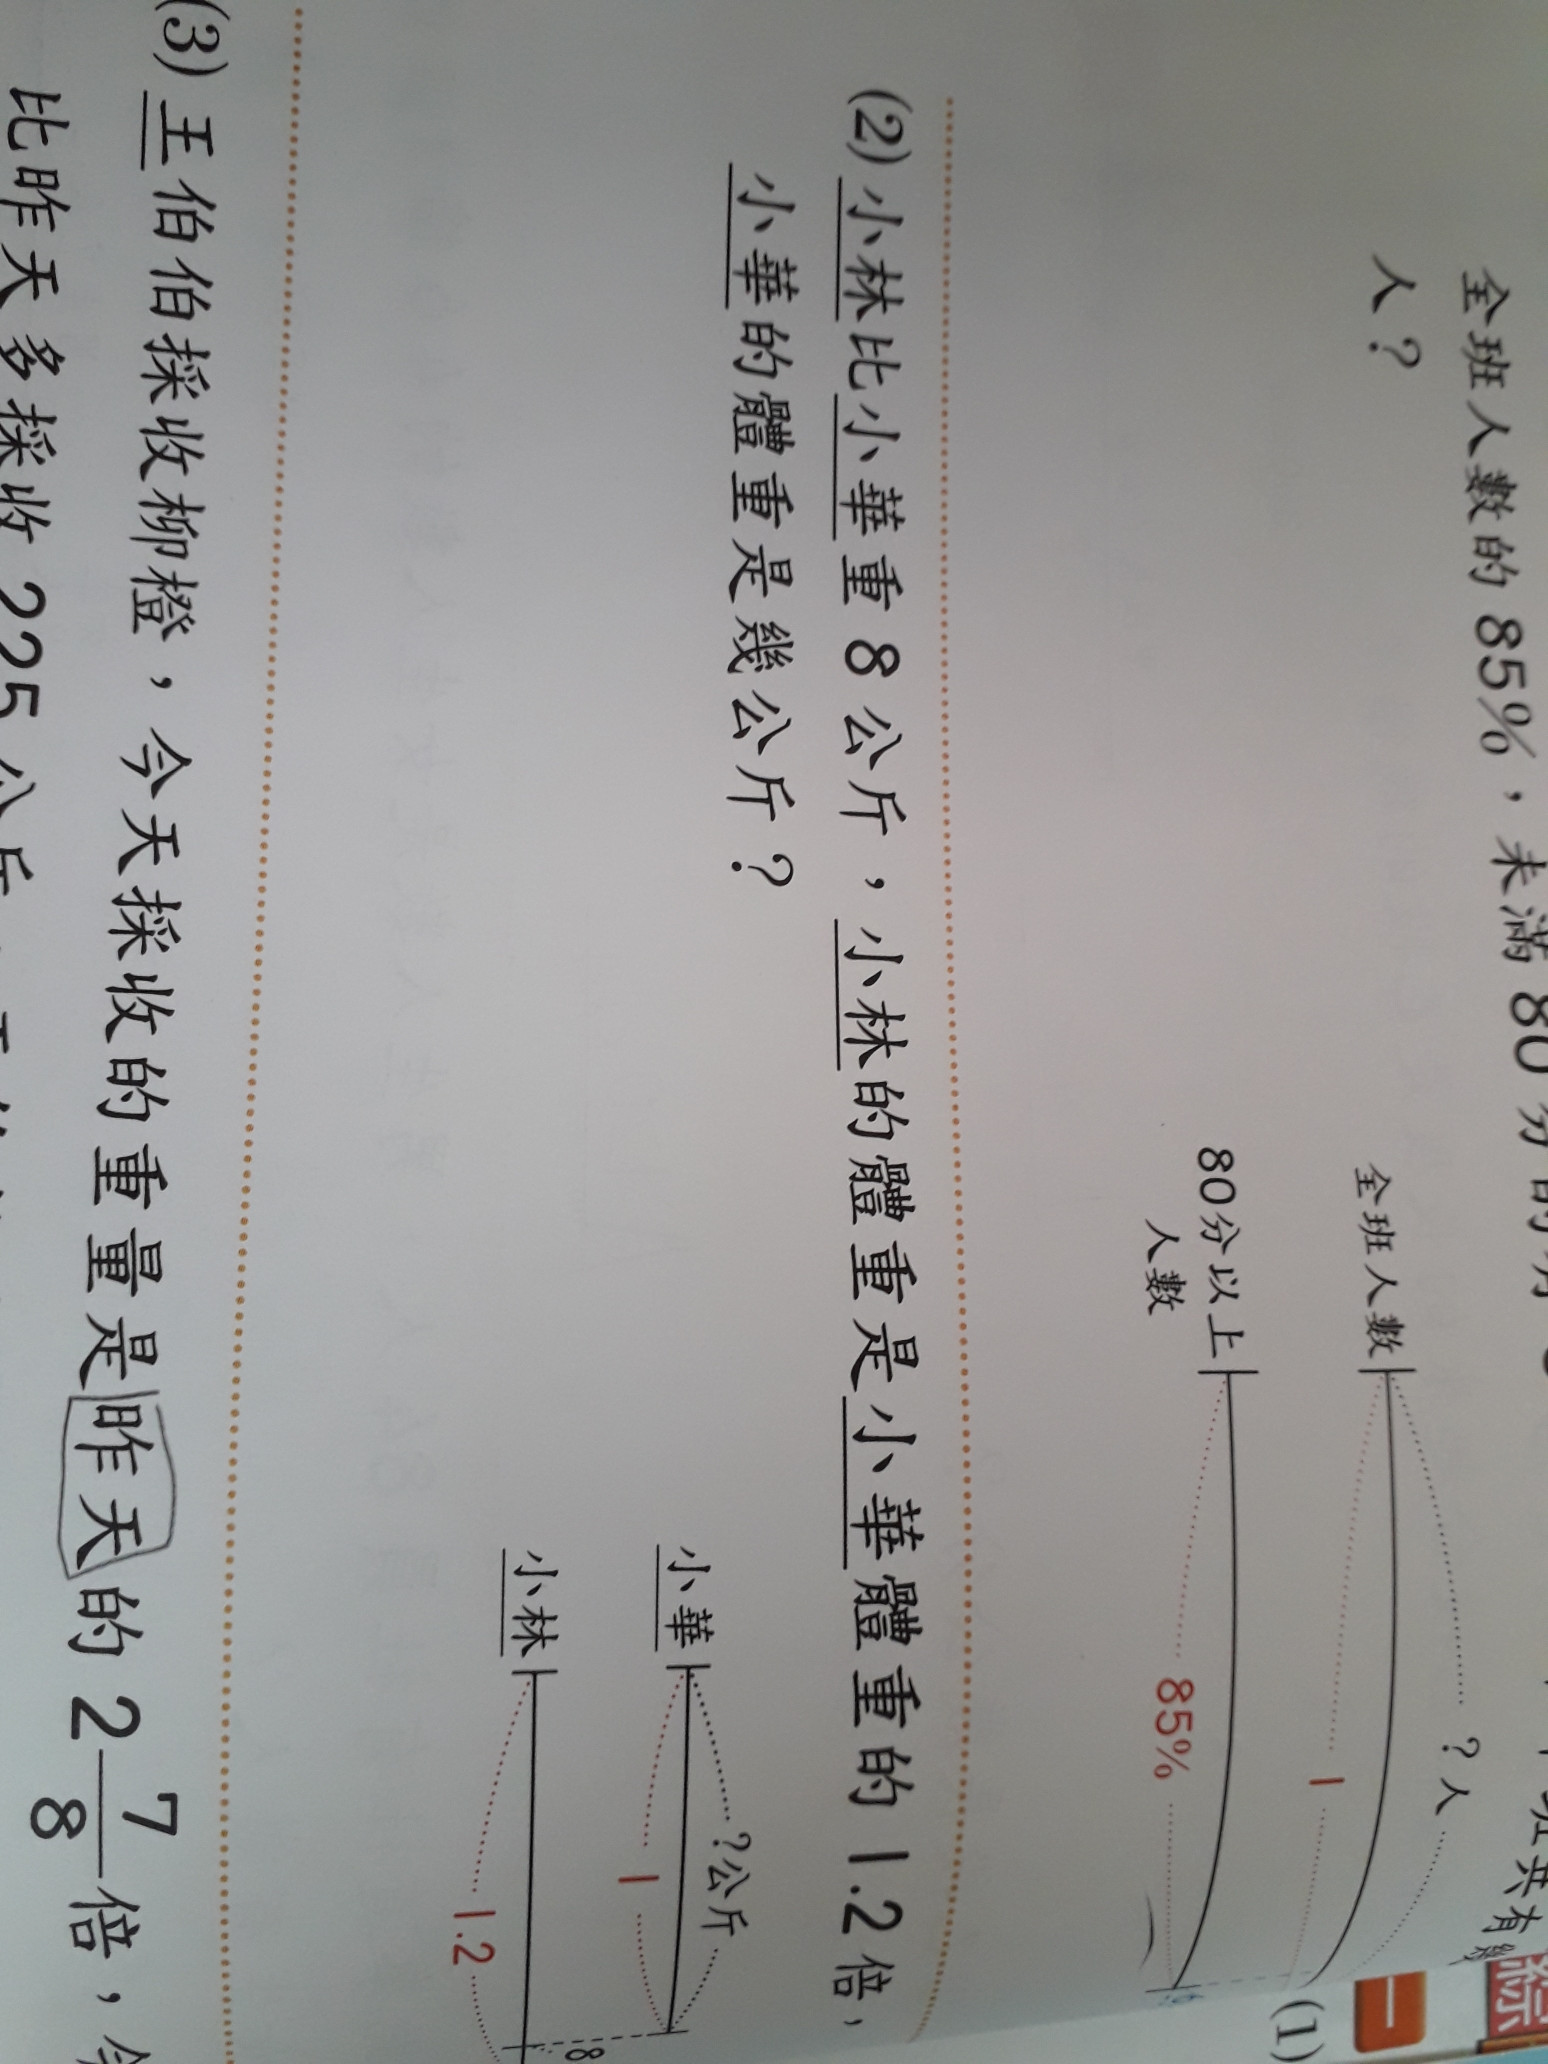 (1)
全班人數的 85%，未滿 80 分的
人？
?人
全班人數
1
80分以上
人數
85%
(2) 小林比小華重 8 公斤，小林的體重是小華體重的 1.2 倍，
小華的體重是幾公斤？
?公斤
小華
1
8
小林
1.2
(3) 王伯伯採收柳橙，今天採收的重量是昨天的 2 7/8 倍，
比昨天多採收 225 公斤